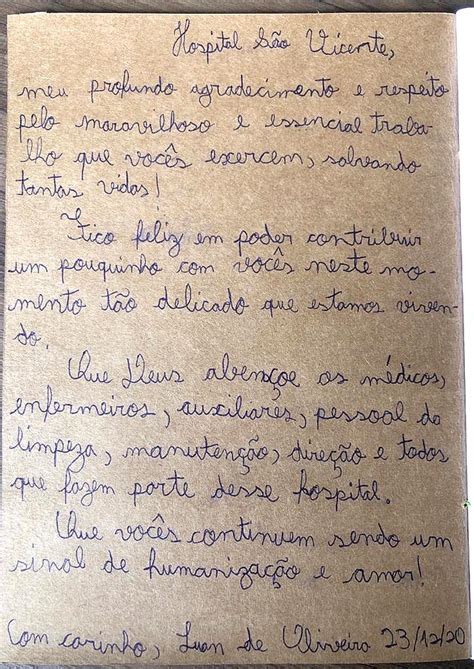 Hospital São Vicente,
meu profundo agradecimento e respeito
pelo maravilhoso e essencial traba-
lho que vocês exercem, salvando
tantas vidas!
Fico feliz em poder contribuir
um pouquinho com vocês neste mo-
mento tão delicado que estamos viven-
do.
Que Deus abençoe os médicos,
enfermeiros, auxiliares, pessoal da
limpeza, manutenção, direção e todos
que fazem parte desse hospital.
Que vocês continuem sendo um
sinal de humanização e amor!
Com carinho, Luan de Oliveira 23/12/20